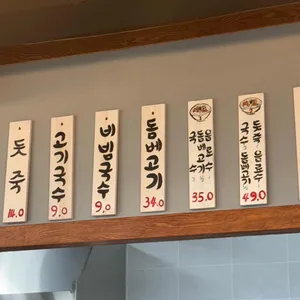 돗죽
14.0
고기국수
9.0
비빔국수
9.0
돔베고기
34.0
올드수
돔베고기
국수
35.0
돗죽 올드수
국수 돔베고기
49.0